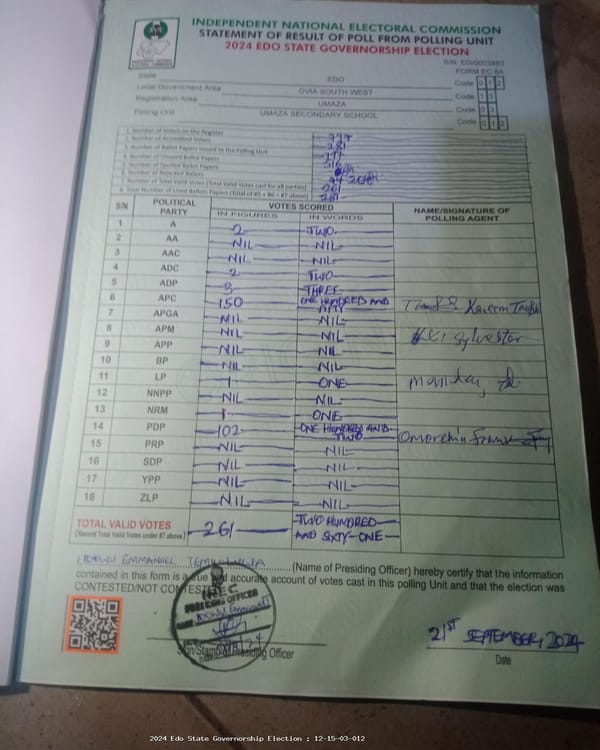 INDEPENDENT NATIONAL ELECTORAL COMMISSION
STATEMENT OF RESULT OF POLL FROM POLLING UNIT
2024 EDO STATE GOVERNORSHIP ELECTION
FORM EC 8A
State EDO Code 12
Local Government Area OVIA SOUTH WEST Code
Registration Area UMAZA Code 03
Polling Unit UMAZA SECONDARY SCHOOL Code 012
1. Number of Voters on the Register
2. Number of Accredited Voters 281
3. Number of Ballot Papers Issued to the Polling Unit
4. Number of Unused Ballot Papers
5. Number of Spoiled Ballot Papers
6. Number of Rejected Ballots
7. Number of Total Valid Votes (Total Valid Votes cast for all parties) 261
8. Total Number of Used Ballots Papers (Total of #5 + #6 + #7 above)
S/N POLITICAL PARTY VOTES SCORED NAME/SIGNATURE OF POLLING AGENT
IN FIGURES IN WORDS
1 A 2 TWO
2 AA NIL NIL
3 AAC NIL NIL
4 ADC 2 TWO
5 ADP 3 THREE
6 APC 150 ONE HUNDRED AND FIFTY Kareem
7 APGA NIL NIL
8 APM NIL NIL Sylvester
9 APP NIL NIL
10 BP NIL NIL
11 LP 1 ONE Monday
12 NNPP NIL NIL
13 NRM 1 ONE
14 PDP 102 ONE HUNDRED AND TWO Frank
15 PRP NIL NIL
16 SDP NIL NIL
17 YPP NIL NIL
18 ZLP NIL NIL
TOTAL VALID VOTES 261 TWO HUNDRED AND SIXTY-ONE
(Record Total Valid Votes under #7 above)
I, EMMANUEL (Name of Presiding Officer) hereby certify that the information
contained in this form is a true and accurate account of votes cast in this polling Unit and that the election was
CONTESTED/NOT CONTESTED
INEC
PRESIDING OFFICER
Sign/Stamp of Presiding Officer
21ST SEPTEMBER, 2024
Date
2024 Edo State Governorship Election : 12-15-03-012